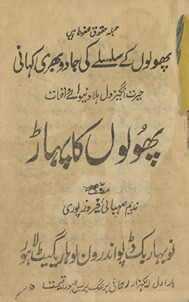 جملہ حقوق محفوظ ہیں
پھولوں کے سلسلے کی جادو بھری کہانی
حیرت انگیز دل ہلا دینے والے واقعات
پھُولوں کا پہاڑ
ندیم صہبائی فیروز پوری
نو بہار بک ڈپو اندرون لوہاری گیٹ لاہور
بار اول